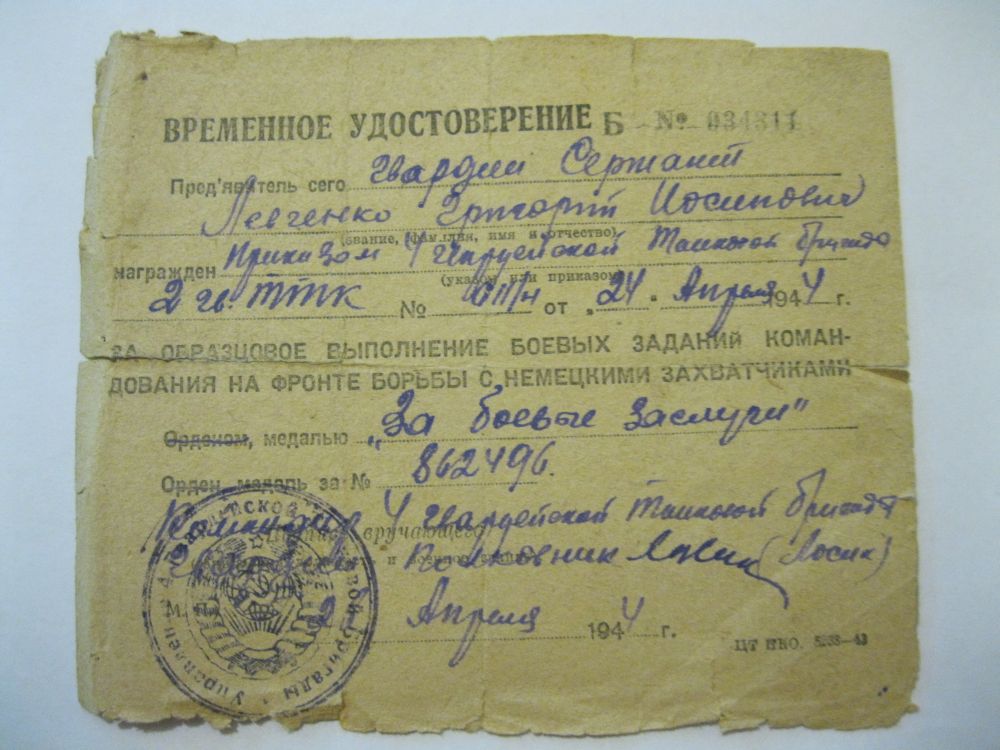 ВРЕМЕННОЕ УДОСТОВЕРЕНИЕ Б № 034311
Пред'явитель сего гвардии Сержант
Левченко Григорий Иосипович
(звание, фамилия, имя и отчество)
награжден Приказом 4 Гвардейской Танковой бригады
(указом или приказом)
2 гв. ТТК № от „24" Апреля 1944 г.
ЗА ОБРАЗЦОВОЕ ВЫПОЛНЕНИЕ БОЕВЫХ ЗАДАНИЙ КОМАН-
ДОВАНИЯ НА ФРОНТЕ БОРЬБЫ С НЕМЕЦКИМИ ЗАХВАТЧИКАМИ
Орденом, медалью „За боевые заслуги"
Орден, медаль за № 862496.
Командир 4 Гвардейской Танковой бригады
вручающего
Гвардии Полковник Лосик (Лосик)
М. П.
Апреля 1944 г.
ЦТ НКО. 43
Управлен бригады